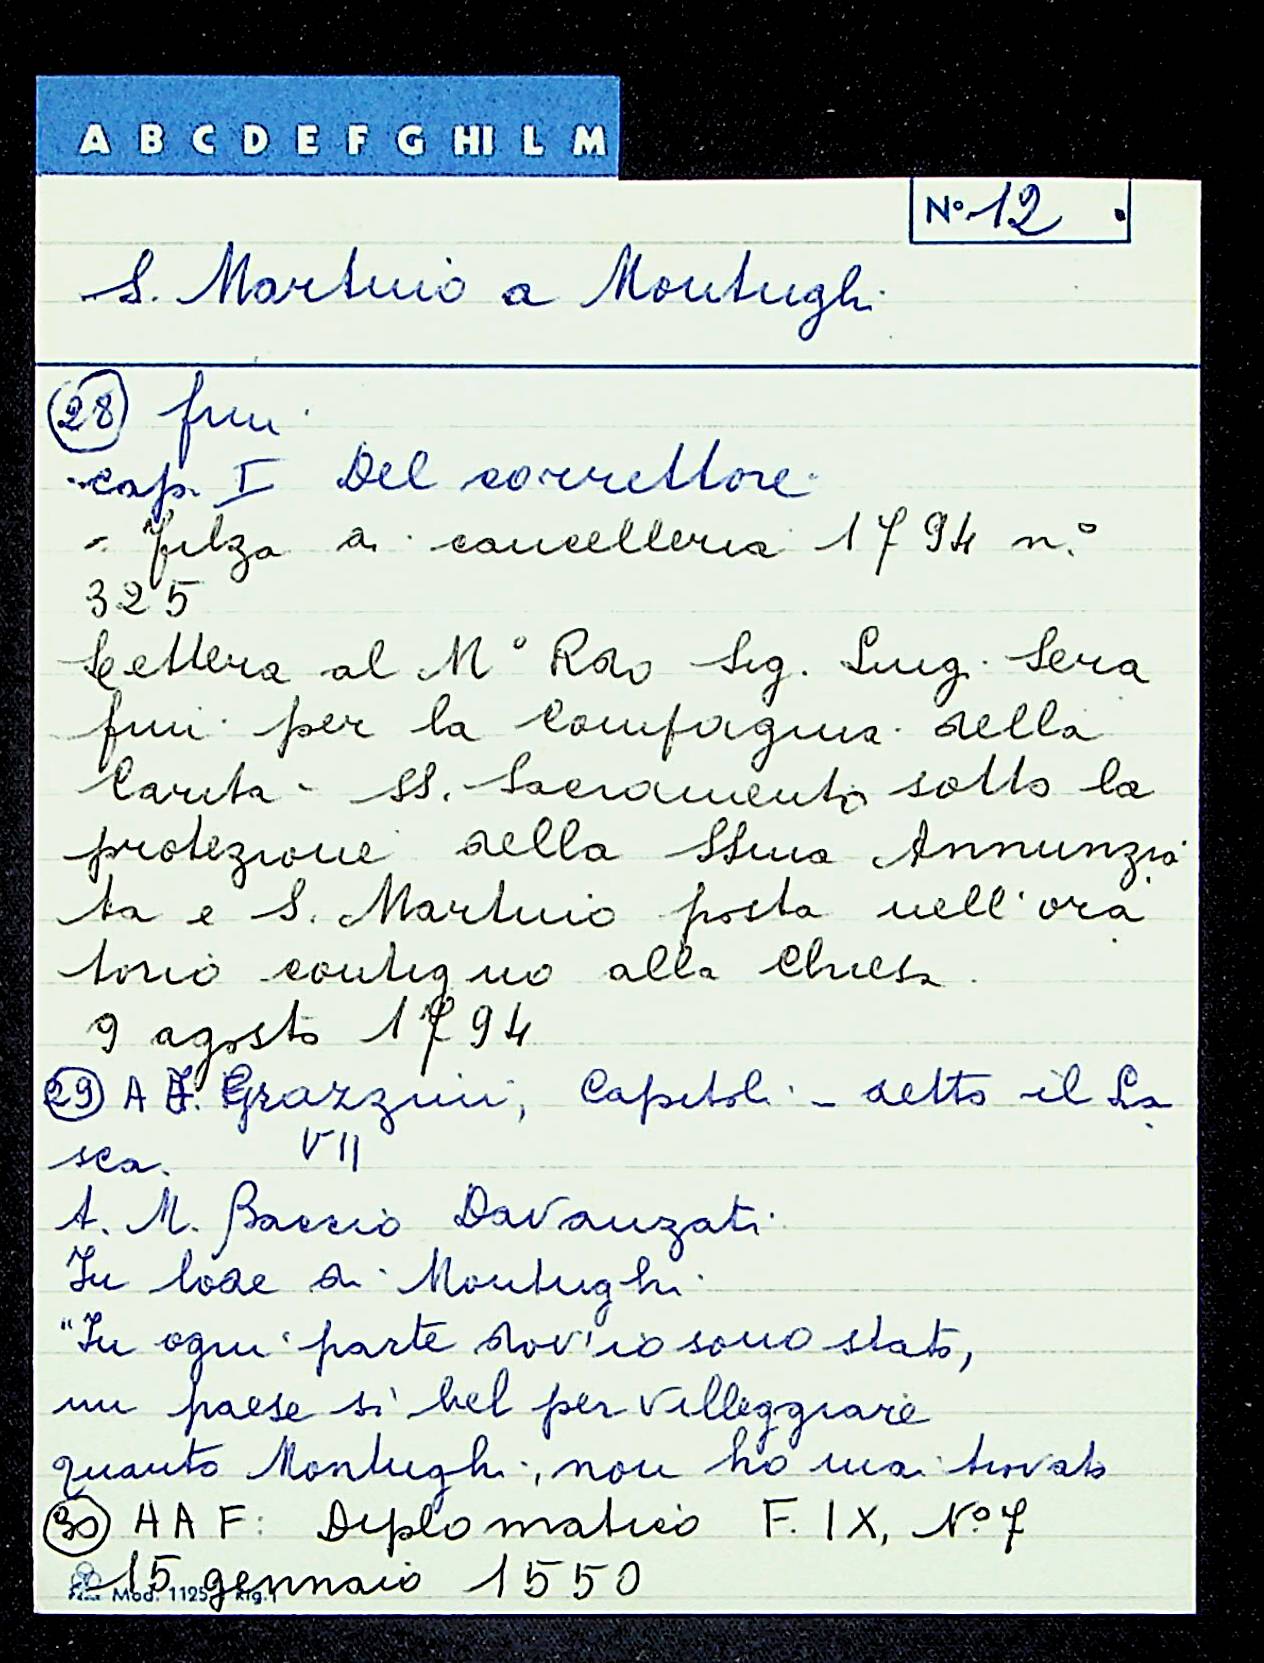 A B C D E F G HI L M
N° 12
S. Martino a Montughi
28 fini
cap. I Del correttore
- Filza di cancelleria 1794 n.°
325
Lettera al M° Rdo Sig. Luigi Sera
fini per la Compagnia della
Carità - SS. Sacramento sotto la
protezione della SSma Annunzia
ta e S. Martino posta nell'ora
torio contiguo alla Chiesa.
9 agosto 1794
29 A F. Grazzini, Capitoli - detto il La
sca. VII
A. M. Baccio Davanzati
In lode di Montughi
"In ogni parte dov'io sono stato,
un paese sì bel per villeggiare
quanto Montughi, non ho mai trovato
30 AAF: Diplomatico F. IX, N° 7
15 gennaio 1550
Mod. 1125 Rig. 1